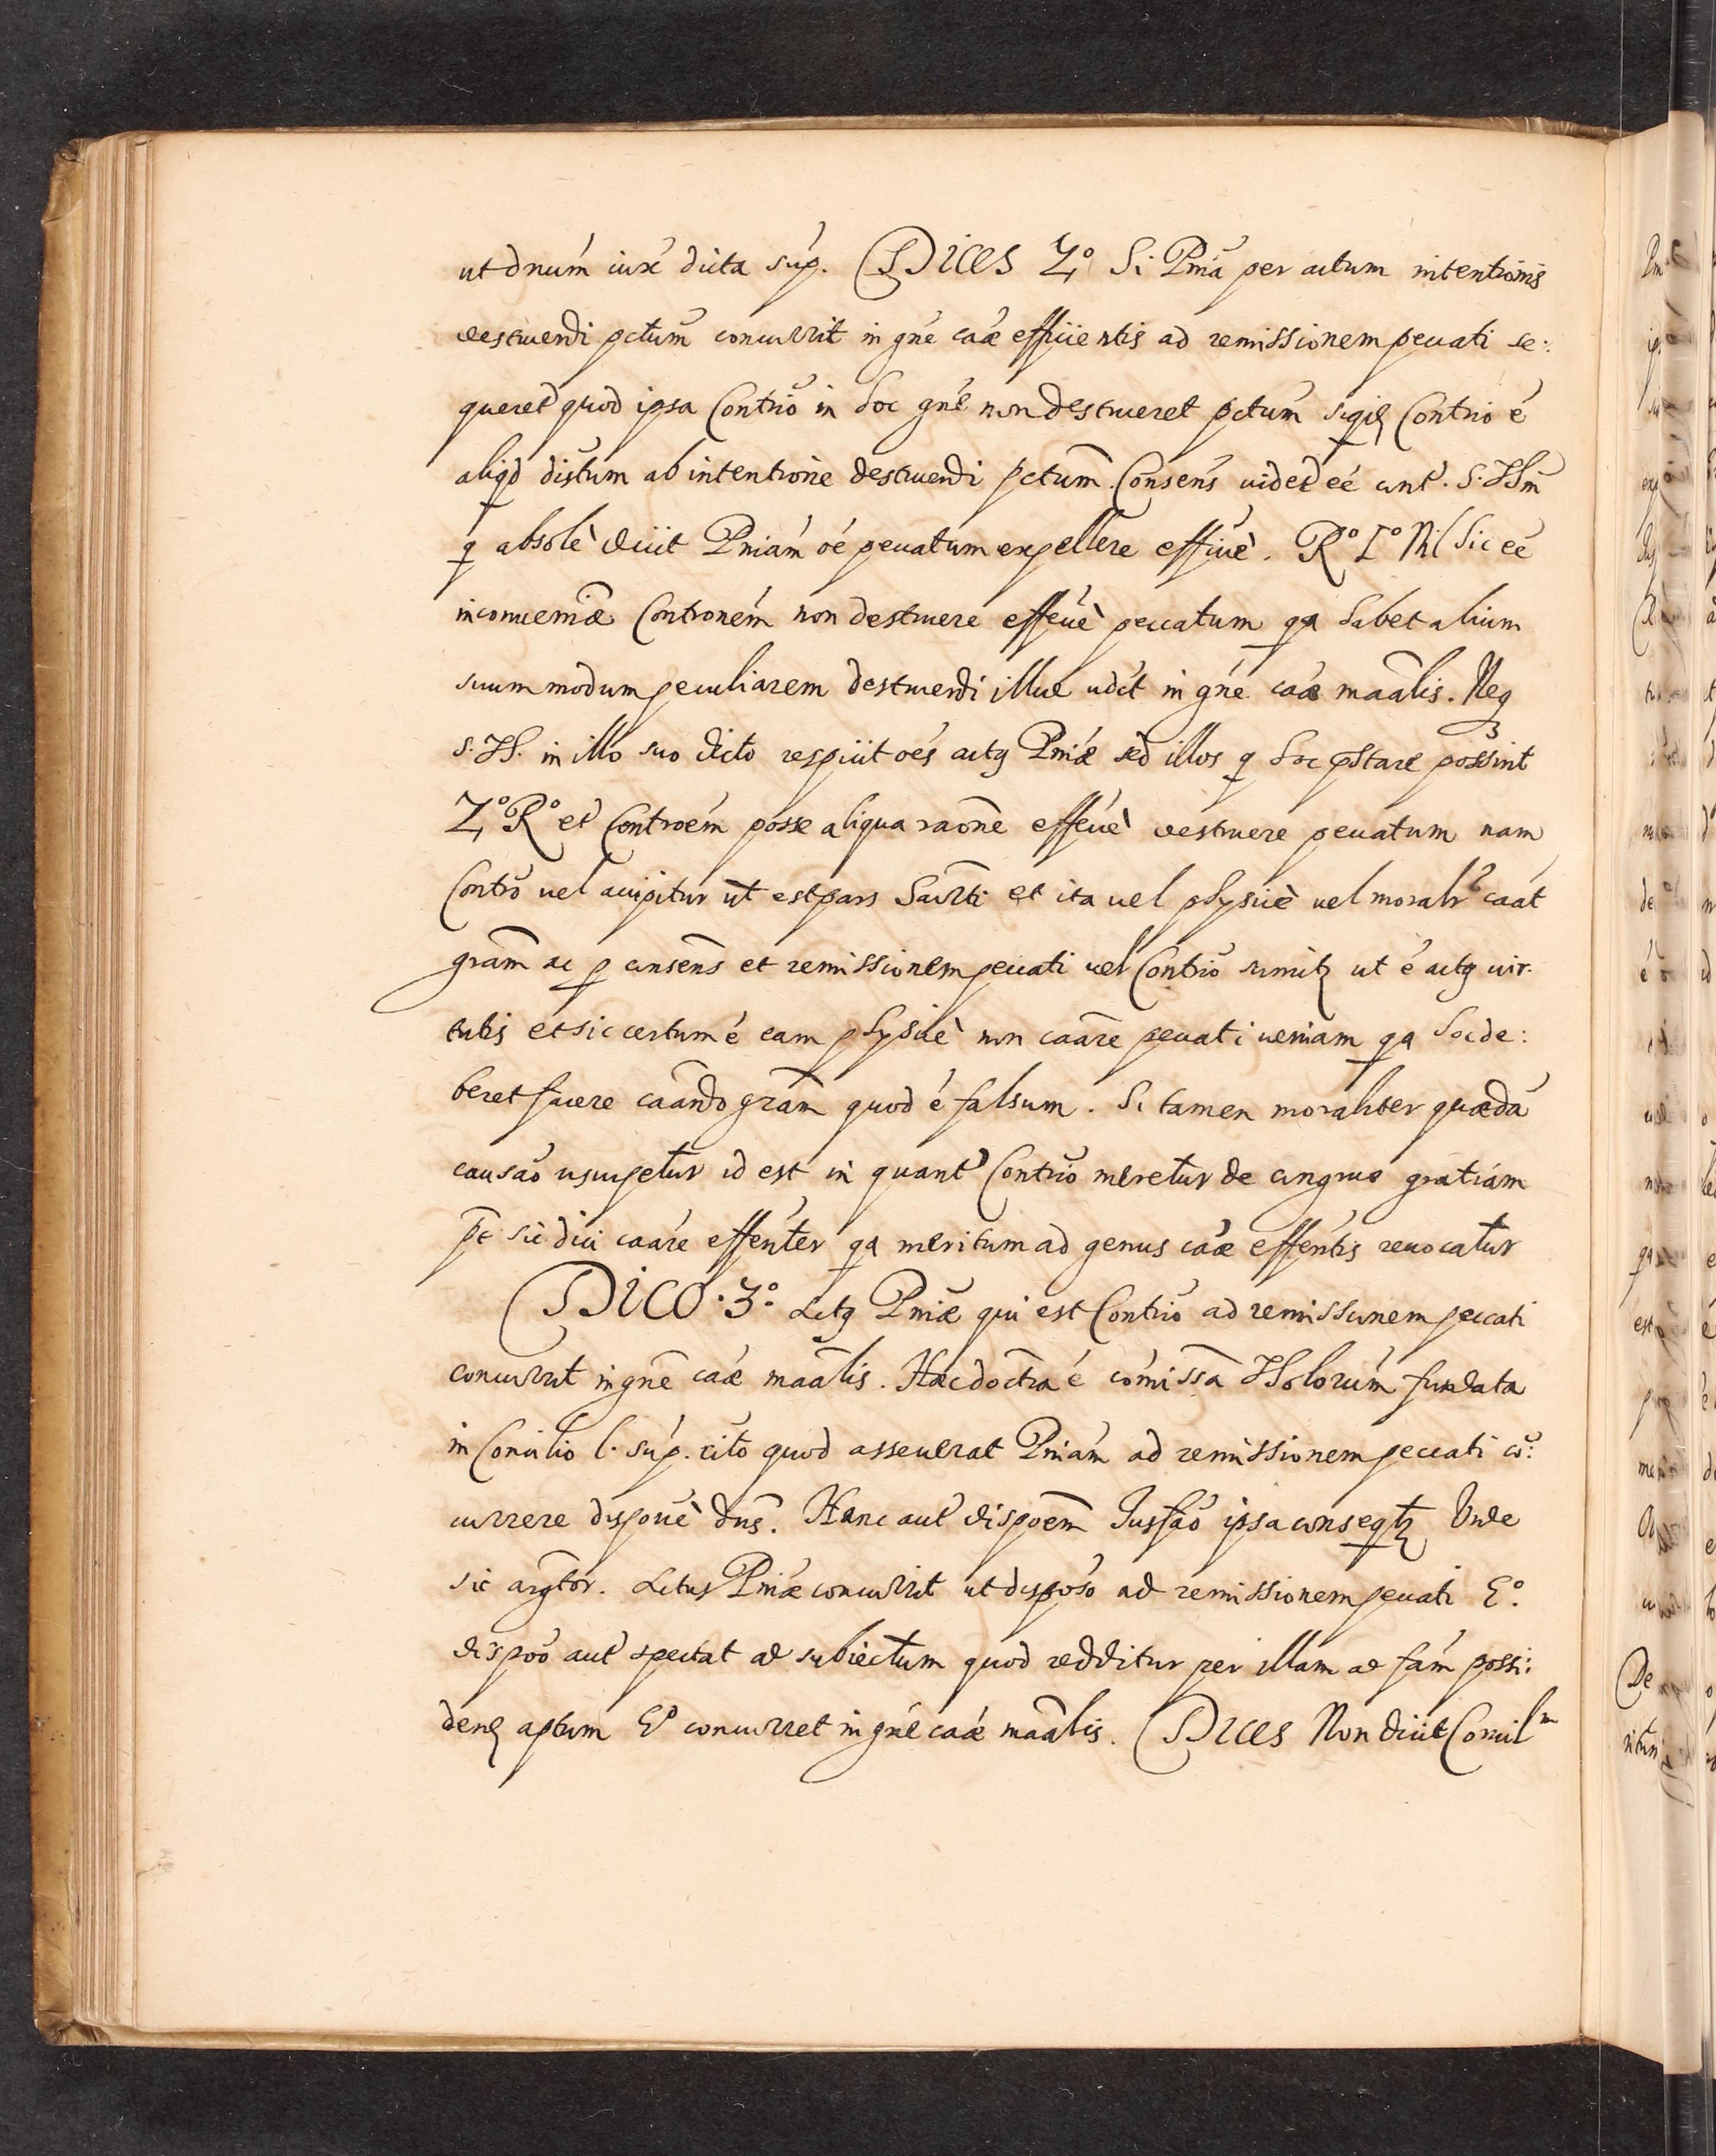 ut dnúm iuxᵉ dicta súp. Dices 2º Si Pnia per actum intentionis
destruendi pctum concurrit in gne caæ efficientis ad remissionem peccati se:
queret quod ipsa Contrio in hoc gne non destrueret pctum siqᵈ Contrio é
aliqd distum ab intentione destruendi pctum. Consens uidet eé cont. S. Thm
q absolè dicit Pniam oé peccatum expellere effiuè. Rº 1º Nil sic eé
inconueniæ Contronem non destruere effeuè peccatum qa habet alium
suum modum peculiarem destruendi illud udet in gne caæ maalis. Neq
S. Th. in illo suo dicto respicit oés actq Pniæ sed illos q hoc pstare possint
2º Rº et Controém posse aliqua raone effeuè destruere peccatum nam
Contrio uel accipitur ut est pars Sacrti et ita uel physicè uel moralr caat
gram ac p consens et remissionem peccati uel Contrio sumitr ut é actq uir-
tutis et sic certum é eam physicè non caare peccati ueniam qa hoc de:
beret facere caando gram quod é falsum. Si tamen moraliter quædá
causao usurpetur id est in quant Contrio meretur de congruo gratiam
pt sic dici caare effenter qa meritum ad genus caæ effentis reuocatur
Dico. 3º. Actq Pniæ qui est Contrio ad remissionem peccati
concurrit in gne caæ maalis. Hæc doctra é comissa Tholorum fundata
in Concilio l. súp. cito quod asseuerat Pniam ad remissionem peccati co:
currere dispouè dns. Hanc aut dispoem Iusfao ipsa conseqtr Unde
sic argtor. Actus Pniæ concurrit ut disposo ad remissionem peccati Eº.
dispoo aut spectat ad subiectum quod redditur per illam ad fam possi:
dend aptum Eº concurret in gne caæ maalis. Dices Non dicit Concilᵐ